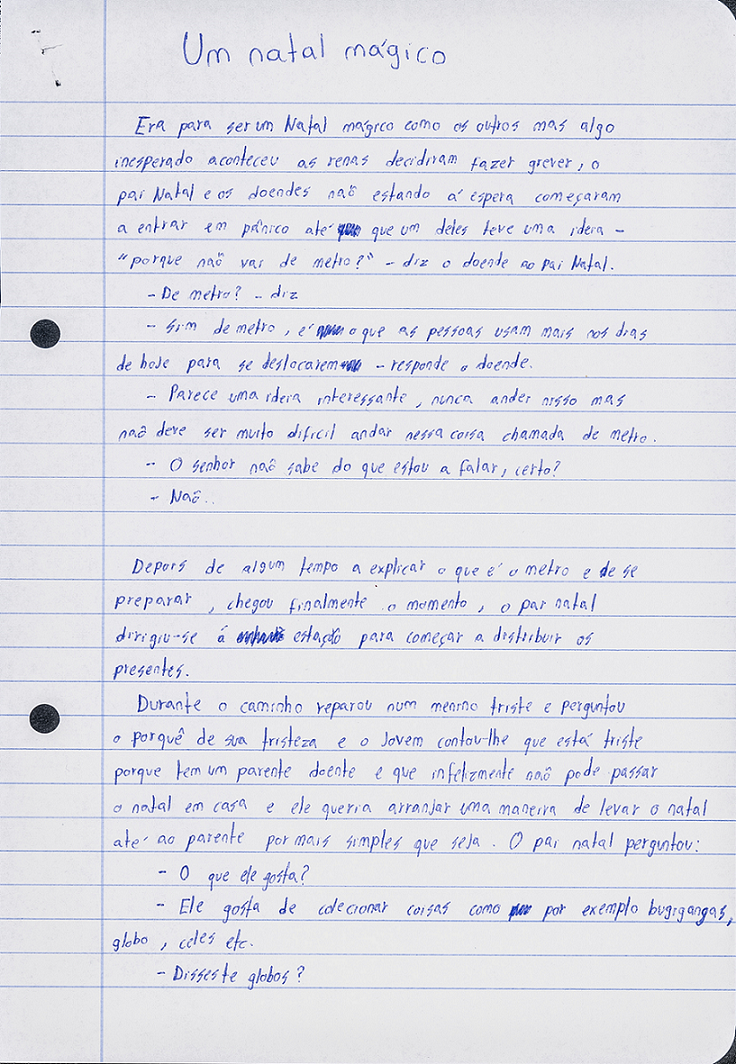 Um natal mágico
Era para ser um Natal mágico como os outros mas algo
inesperado aconteceu as renas decidiram fazer grever, o
pai Natal e os doendes naõ estando á espera começaram
a entrar em pânico até que um deles teve uma ideia -
"porque naõ vai de metro?" - diz o doende ao Pai Natal.
- De metro? - diz
- Sim de metro, é o que as pessoas usam mais nos dias
de hoje para se deslocarem - responde o doende.
- Parece uma ideia interessante, nunca andei nisso mas
naõ deve ser muito dificil andar nessa coisa chamada de metro.
- O senhor naõ sabe do que estou a falar, certo?
- Naõ..
Depois de algum tempo a explicar o que é o metro e de se
preparar, chegou finalmente o momento, o pai natal
dirigiu-se á estação para começar a distribuir os
presentes.
Durante o caminho reparou num menino triste e perguntou
o porquê de sua tristeza e o Jovem contou-lhe que está triste
porque tem um parente doente e que infelizmente naõ pode passar
o natal em casa e ele queria arranjar uma maneira de levar o natal
até ao parente por mais simples que seja. O pai natal perguntou:
- O que ele gosta?
- Ele gosta de colecionar coisas como por exemplo bugigangas,
globo, etc.
- Disseste globos?